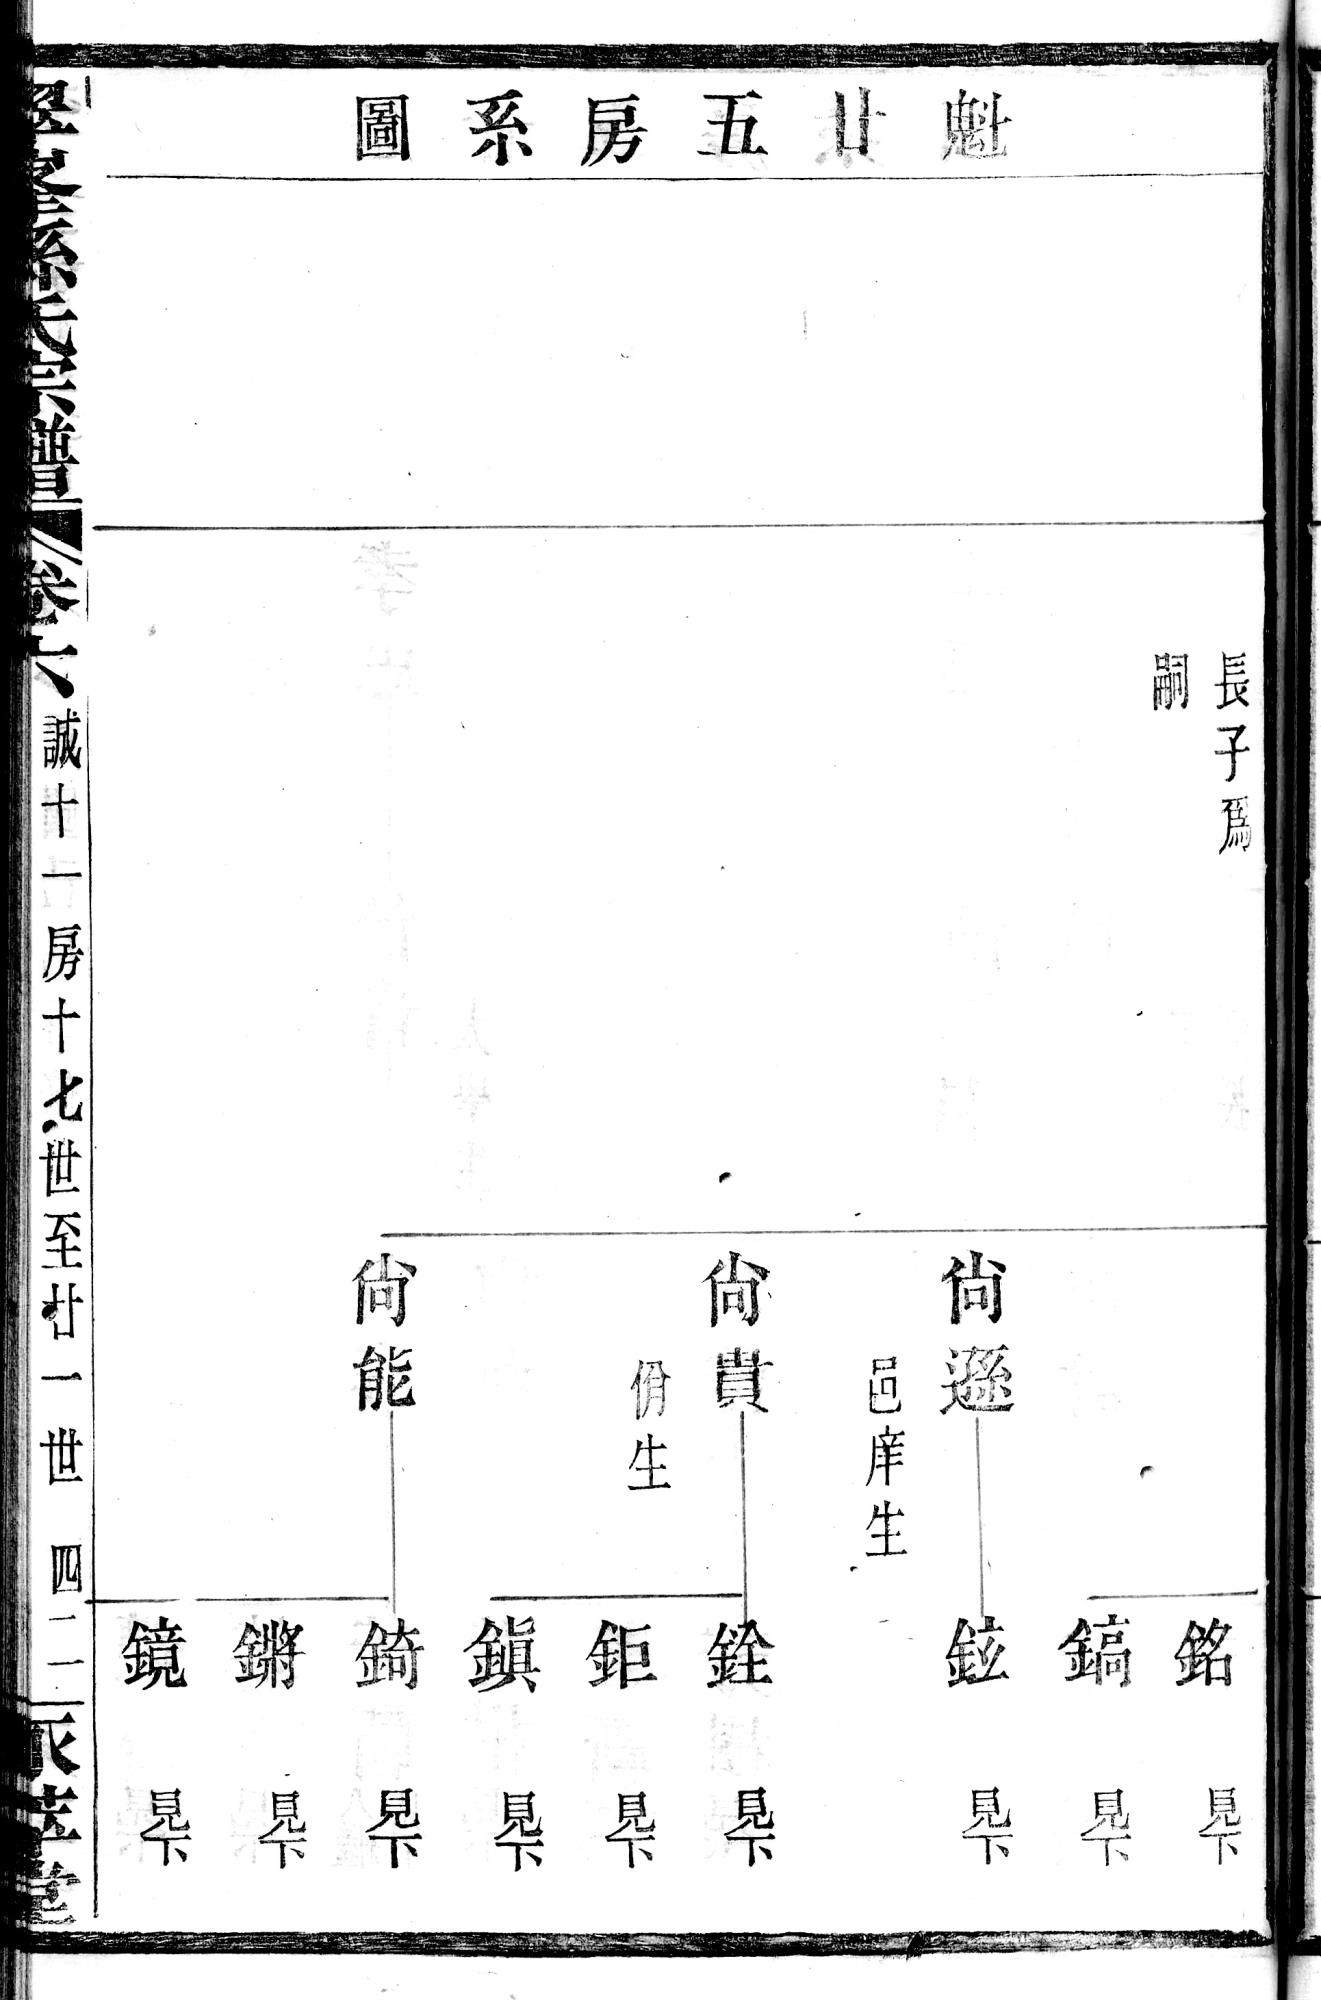 魁廿五房系圖
長子爲
嗣
尙遜
邑庠生
尙貴
佾生
尙能
銘 見下
鎬 見下
鉉 見下
銓 見下
鉅 見下
鎭 見下
錡 見下
鏘 見下
鏡 見下
孫氏宗譜
卷六
誠十一房十七世至廿一世
四二一
堂